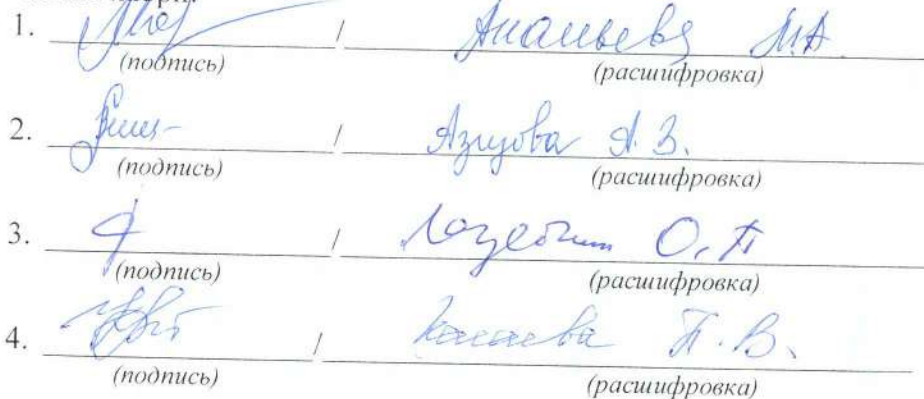 1. / Ананьева М.А
(подпись) (расшифровка)
2. / Азизова А.З.
(подпись) (расшифровка)
3. / О.П
(подпись) (расшифровка)
4. / П.В.
(подпись) (расшифровка)